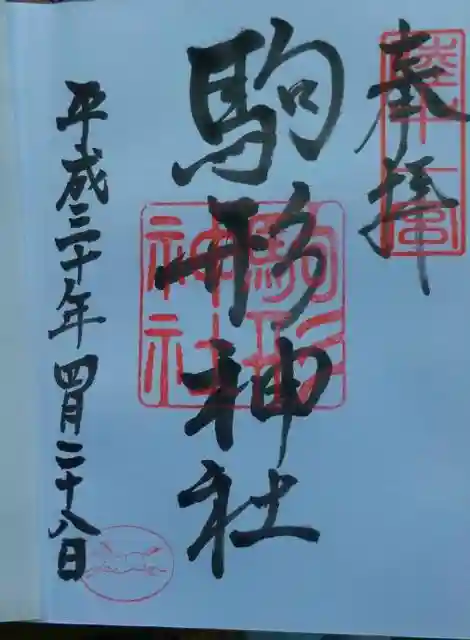 奉拝
陸中一宮
駒形神社
駒形神社
平成三十年四月二十八日